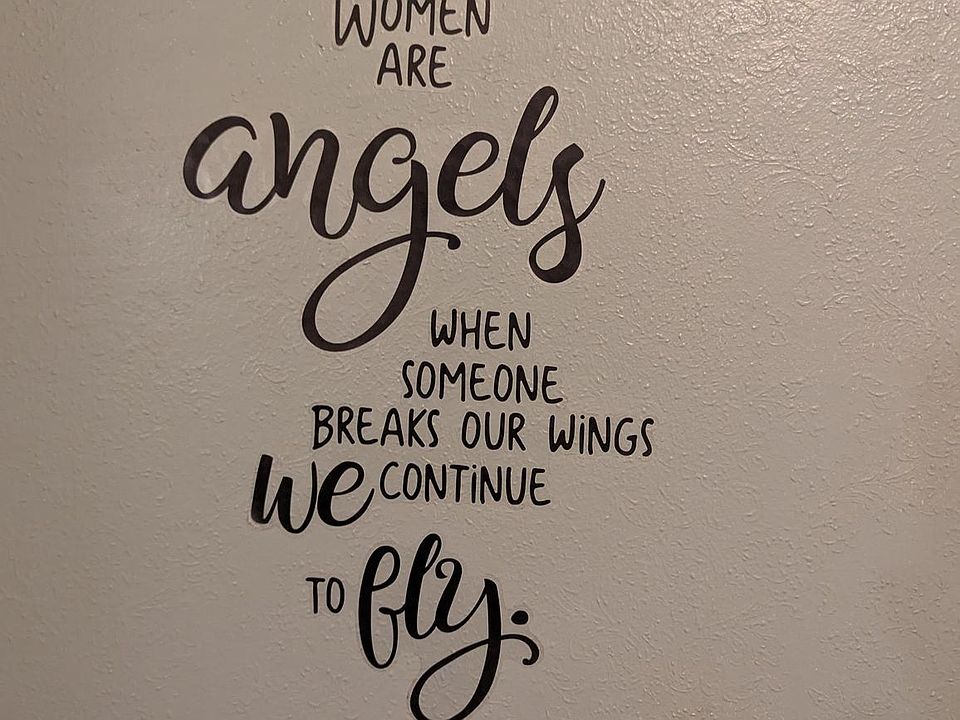 WOMEN
ARE
angels
WHEN
SOMEONE
BREAKS OUR WiNGS
we CONTiNUE
TO fly.